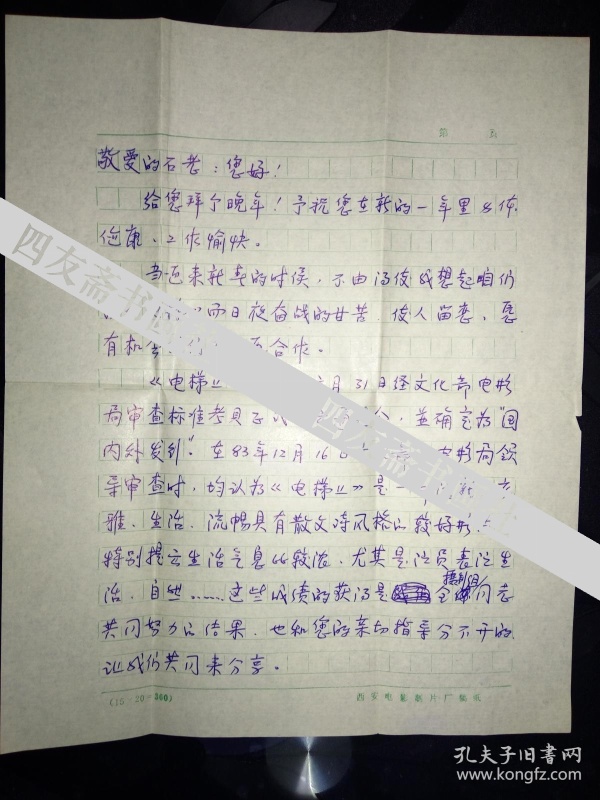 第 页
敬爱的石老：您好！
给您拜个晚年！予祝您在新的一年里身体
健康、工作愉快。
当迎来新春的时候，不由得使我想起咱们
而日夜奋战的甘苦，使人留恋，愿
有机会 合作。
《电梯上》 月31日经文化部电影
局审查标准拷贝正式 ，并确定为“国
内外发行”。在83年12月16日 电影局领
导审查时，均认为《电梯上》是一
雅、生活、流畅具有散文诗风格的较好影片
特别提出生活气息比较浓，尤其是演员表演生
活、自然……这些成绩的获得是全摄制组同志
共同努力的结果，也和您的亲切指导分不开的
让我们共同来分享。
(15×20=300)
西安电影制片厂稿纸
四友斋书
四友斋书
孔夫子旧书网
www.kongfz.com